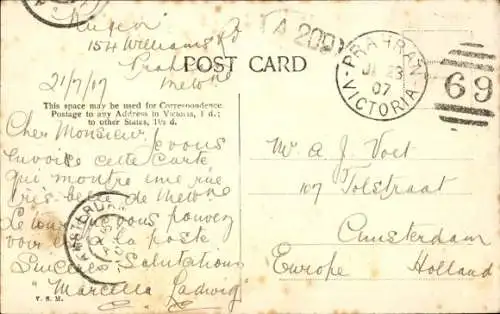 154 Williams Rd
Prahran
Melbne
21/7/07
POST CARD
This space may be used for Correspondence
Postage to any Address in Victoria, 1 d.;
to other States, 1½ d.
PRAHRAN
23
07
VICTORIA
69
Cher Monsieur je vous
envoie cette carte
qui montre une rue
très belle de Melbne
vous pouvez
voir la poste
Sincères Salutations
"Marcella Ladwig"
V. S. M.
Mr A. J. Voet
107 Tolstraat
Amsterdam
Europe Holland
AMSTERDAM